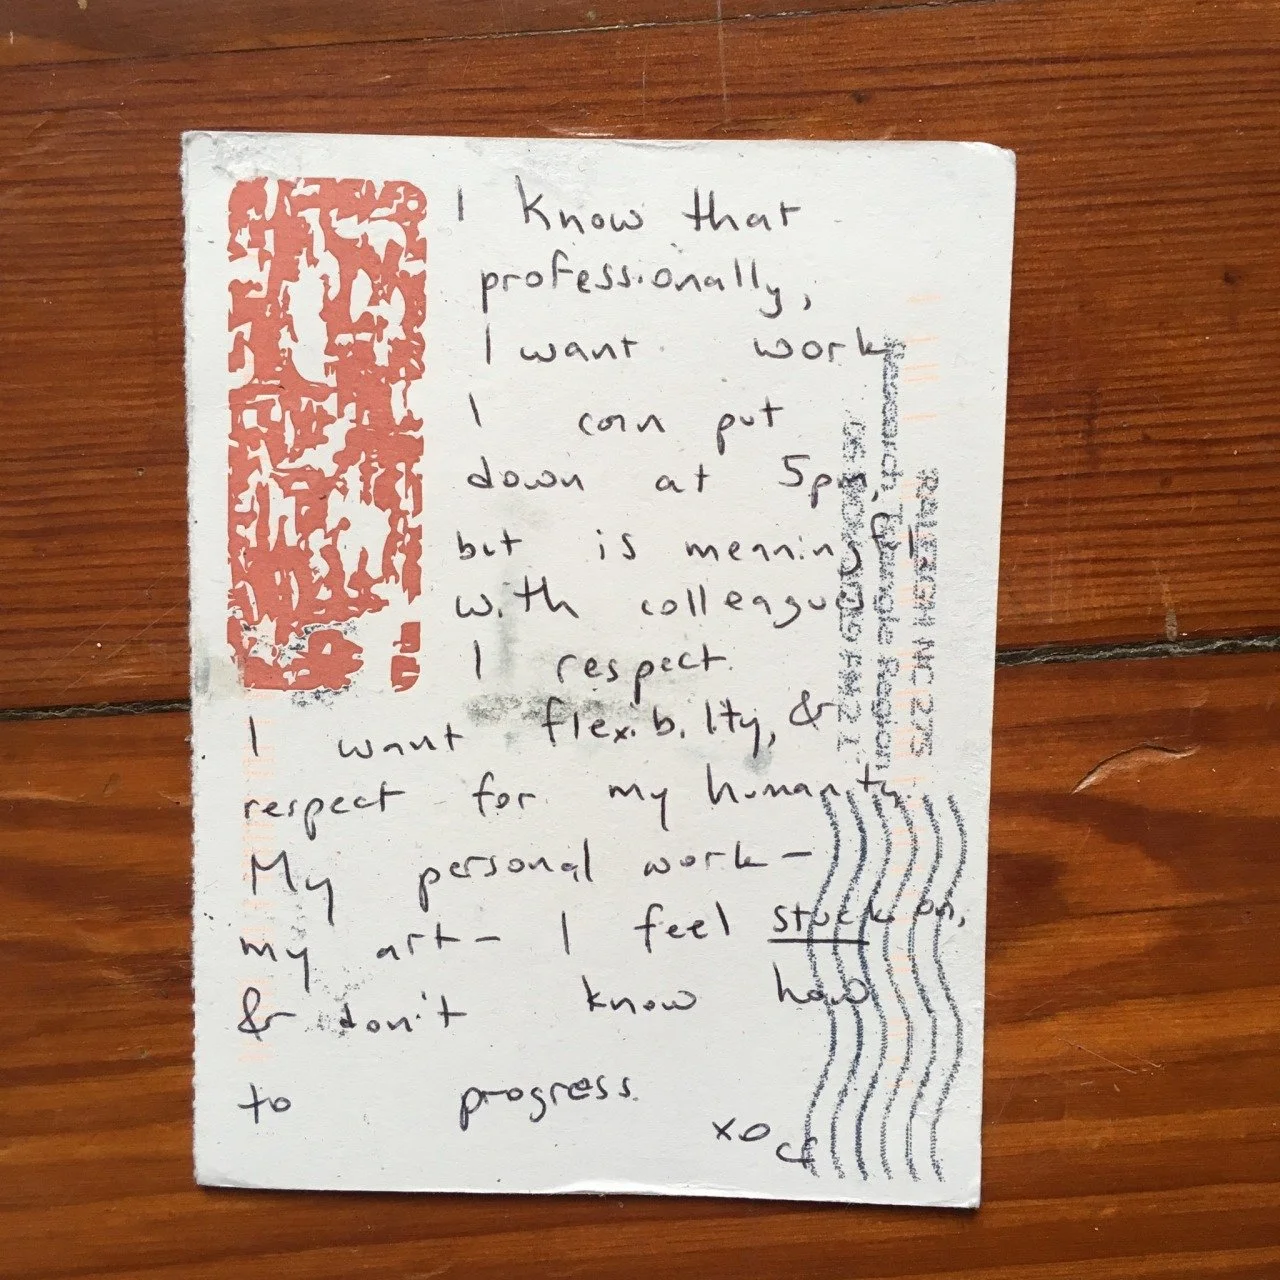 I know that
professionally,
I want work
I can put
down at 5pm,
but is meaningful
with colleagues
I respect.
I want flexibility, &
respect for my humanity.
My personal work –
my art – I feel stuck on,
& don't know how
to progress.
xo cf
Research Triangle Region
RALEIGH NC 275